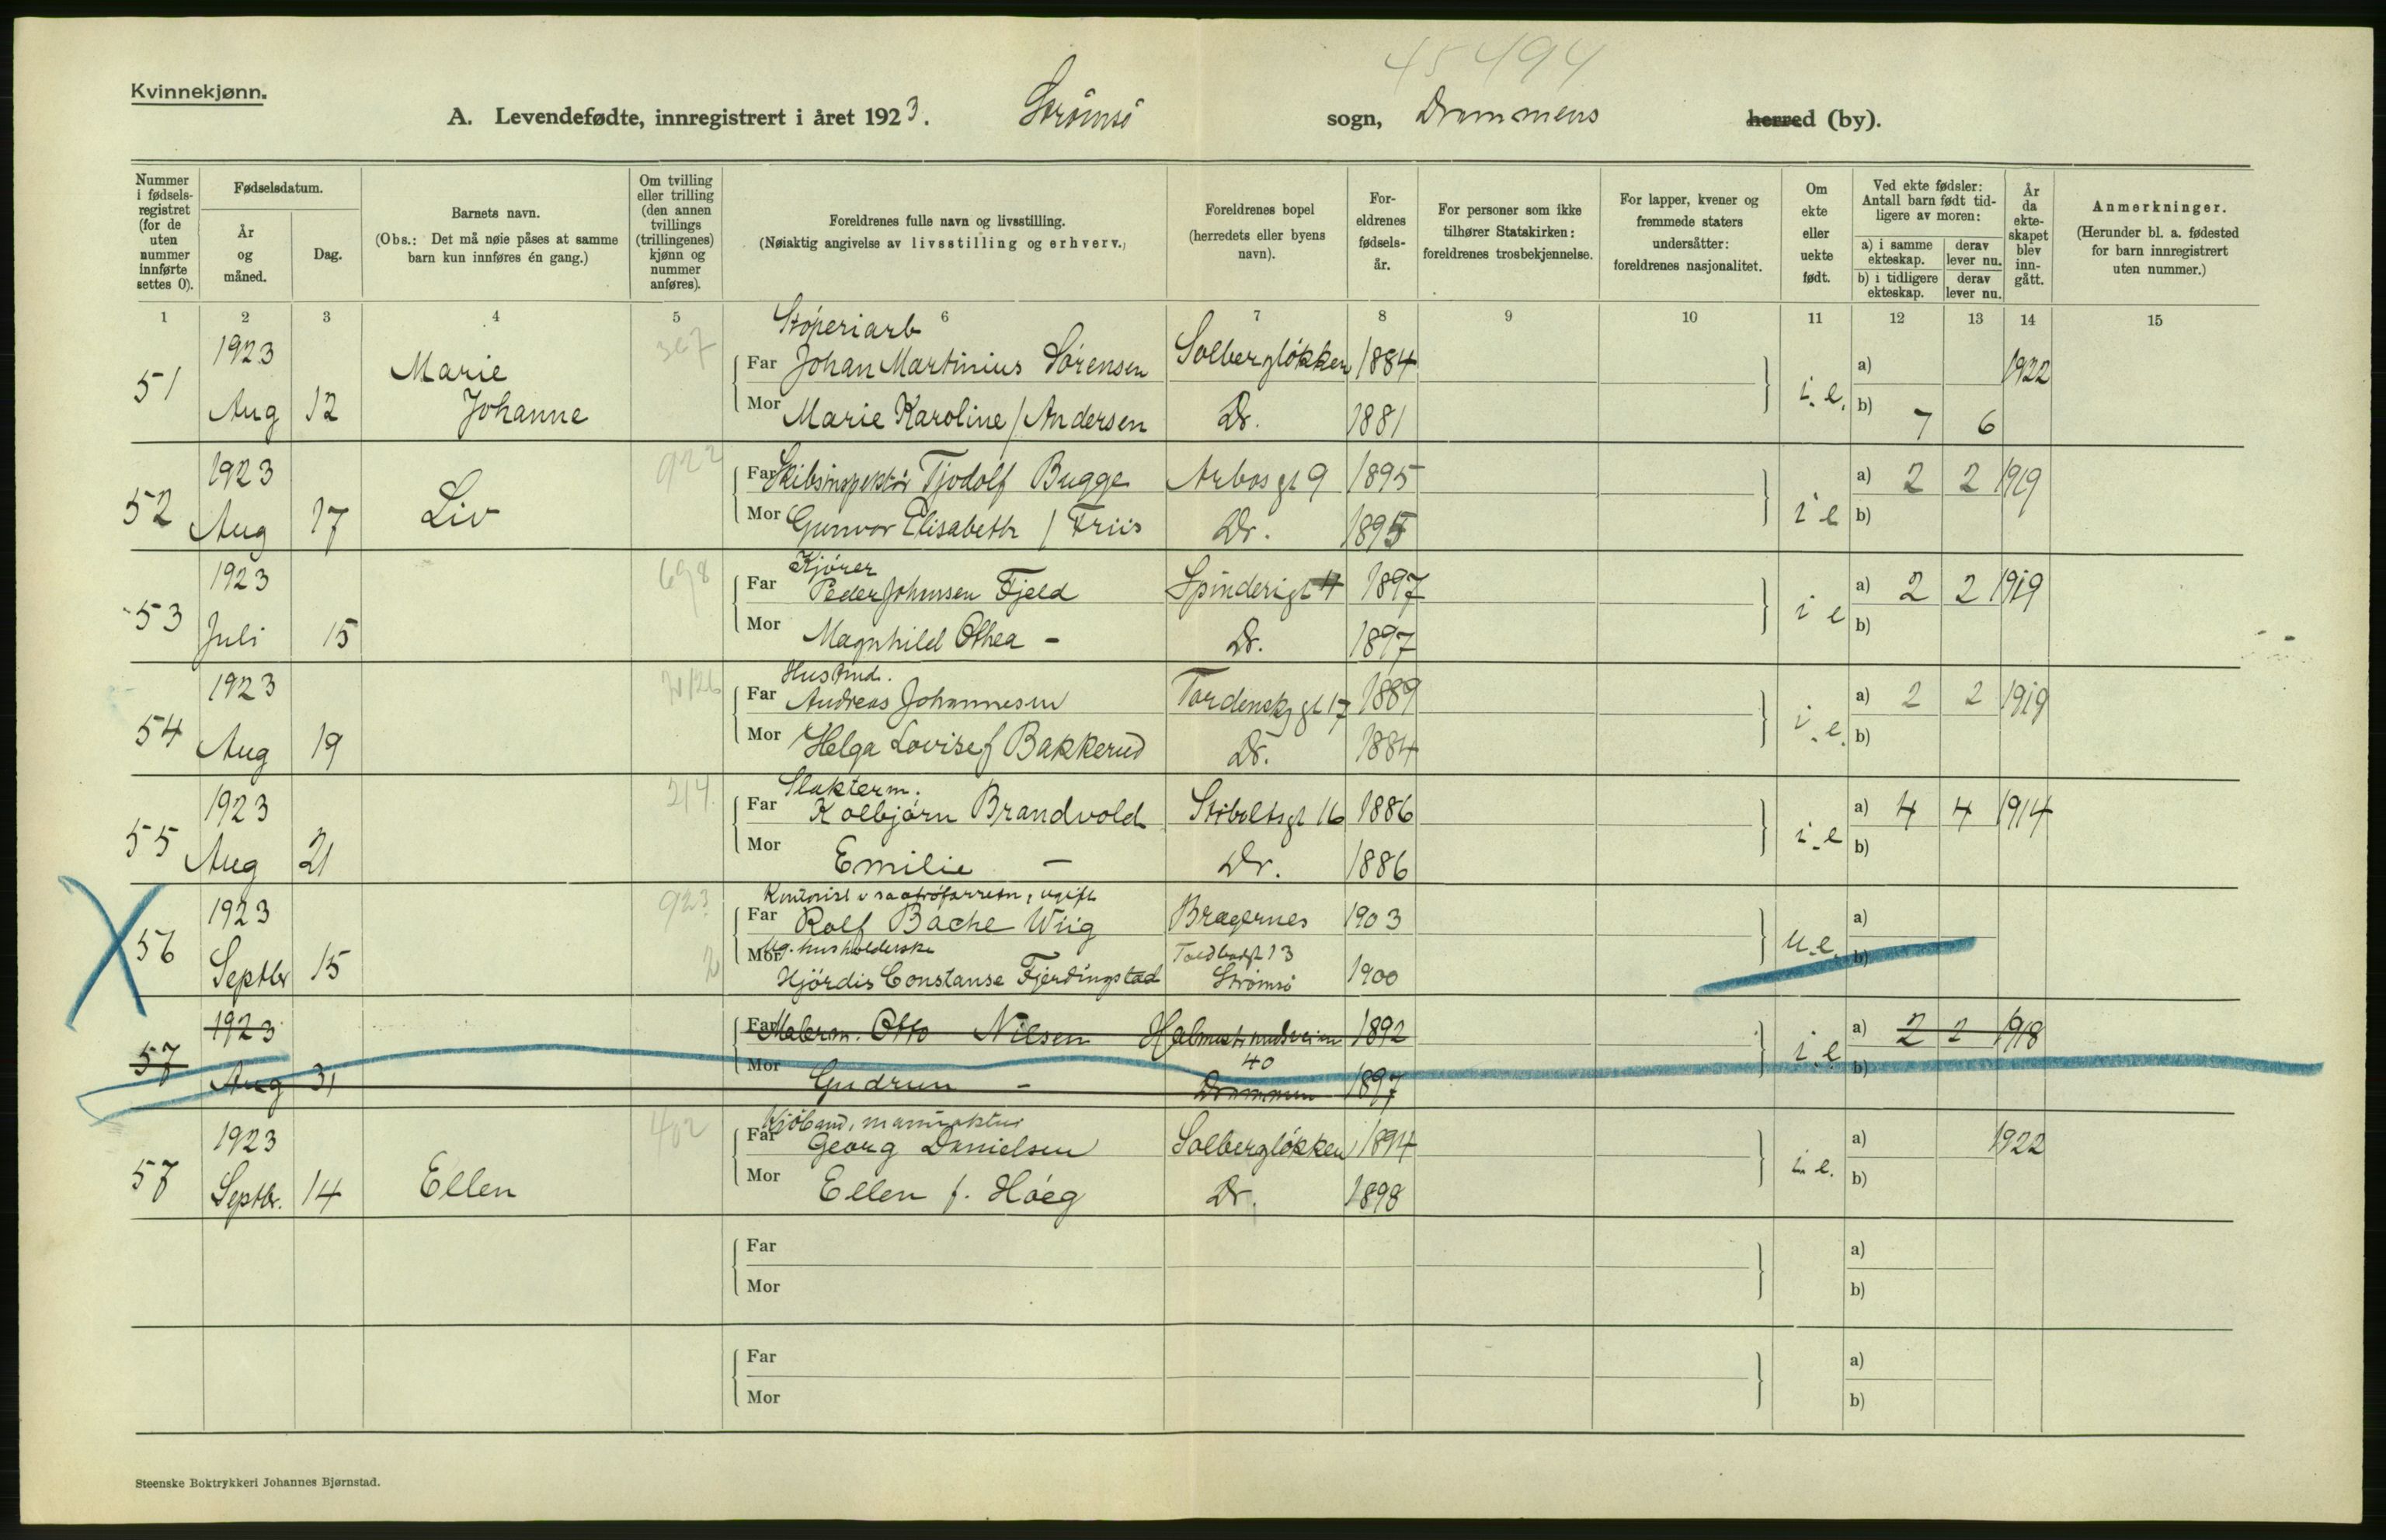 45494
Kvinnekjønn.
A. Levendefødte, innregistrert i året 1923. Strømsø sogn, Drammens herred (by).
Nummer i fødselsregistret (for de uten nummer innførte settes 0).
Fødselsdatum.
År og måned.
Dag.
Barnets navn.
(Obs.: Det må nøie påses at samme barn kun innføres én gang.)
Om tvilling eller trilling (den annen tvillings (trillingenes) kjønn og nummer anføres).
Foreldrenes fulle navn og livsstilling.
(Nøiaktig angivelse av livsstilling og erhverv.)
Foreldrenes bopel (herredets eller byens navn).
Foreldrenes fødselsår.
For personer som ikke tilhører Statskirken: foreldrenes trosbekjennelse.
For lapper, kvener og fremmede staters undersåtter: foreldrenes nasjonalitet.
Om ekte eller uekte født.
Ved ekte fødsler: Antall barn født tidligere av moren:
a) i samme ekteskap. derav lever nu.
b) i tidligere ekteskap. derav lever nu.
År da ekteskapet blev inngått.
Anmerkninger.
(Herunder bl. a. fødested for barn innregistrert uten nummer.)
1 2 3 4 5 6 7 8 9 10 11 12 13 14 15
Støperiarb
51 1923 Marie 367 Far Johan Martinius Sørensen Solbergløkken 1884 i. e. a) 1922
Aug 12 Johanne Mor Marie Karoline / Andersen Dr. 1881 b) 7 6
52 1923 Liv 922 Far Skibsinspektør Tjodolf Bugge Arbos gt 9 1895 i e a) 2 2 1919
Aug 17 Mor Gunvor Elisabeth / Friis Dr. 1895 b)
Kjører
53 1923 698 Far Peder Johansen Fjeld Spinderigt 4 1897 i e a) 2 2 1919
Juli 15 Mor Magnhild Othea - Dr. 1897 b)
54 1923 Far Andreas Johannesen Tordenskj gt 17 1889 i. e. a) 2 2 1919
Aug 19 Mor Helga Lovise f Bakkerud Dr. 1884 b)
Slakterm.
55 1923 214 Far Kolbjørn Brandvold Stiboltsgt 16 1886 i. e a) 4 4 1914
Aug 21 Mor Emilie - Dr. 1886 b)
56 1923 923 Far Rolf Bache Wiig Bragernes 1903 u. e. a)
ug. husholderske Toldbodgt 13
Septbr 15 2 Mor Hjördis Constanse Fjerdingstad Strømsö 1900 b)
57 1923 Far Malerm. Otto Nilsen 1892 i. e a) 2 2 1918
40
Aug 31 Mor Gudrun - Drammen 1897 b)
57 1923 402 Far Georg Danielsen Solbergløkken 1894 i. e. a) 1922
Septbr. 14 Ellen Mor Ellen f. Høeg Dr. 1898 b)
Far a)
Mor b)
Far a)
Mor b)
Steenske Boktrykkeri Johannes Bjørnstad.